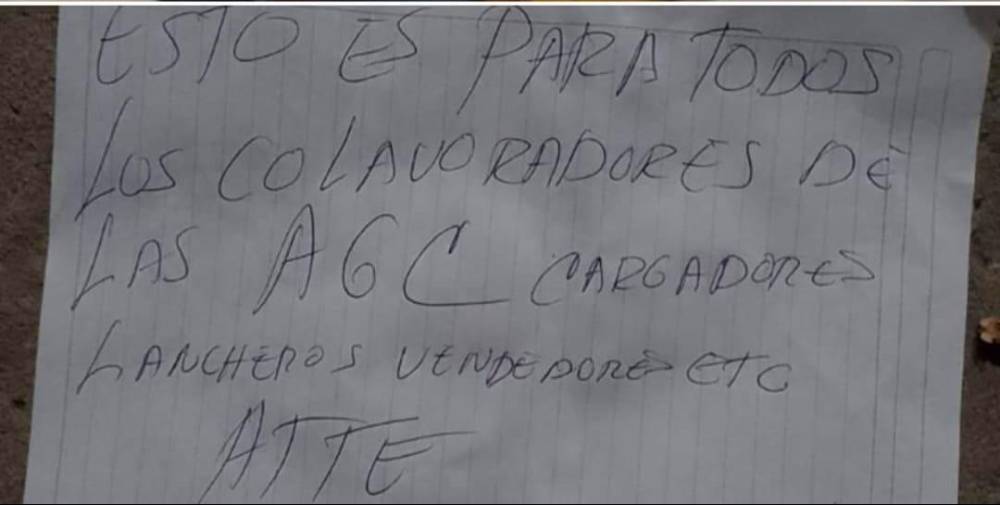 ESTO ES PARA TODOS
LOS COLAVORADORES DE
LAS AGC CARGADORES
LANCHEROS VENDEDORES ETC
ATTE